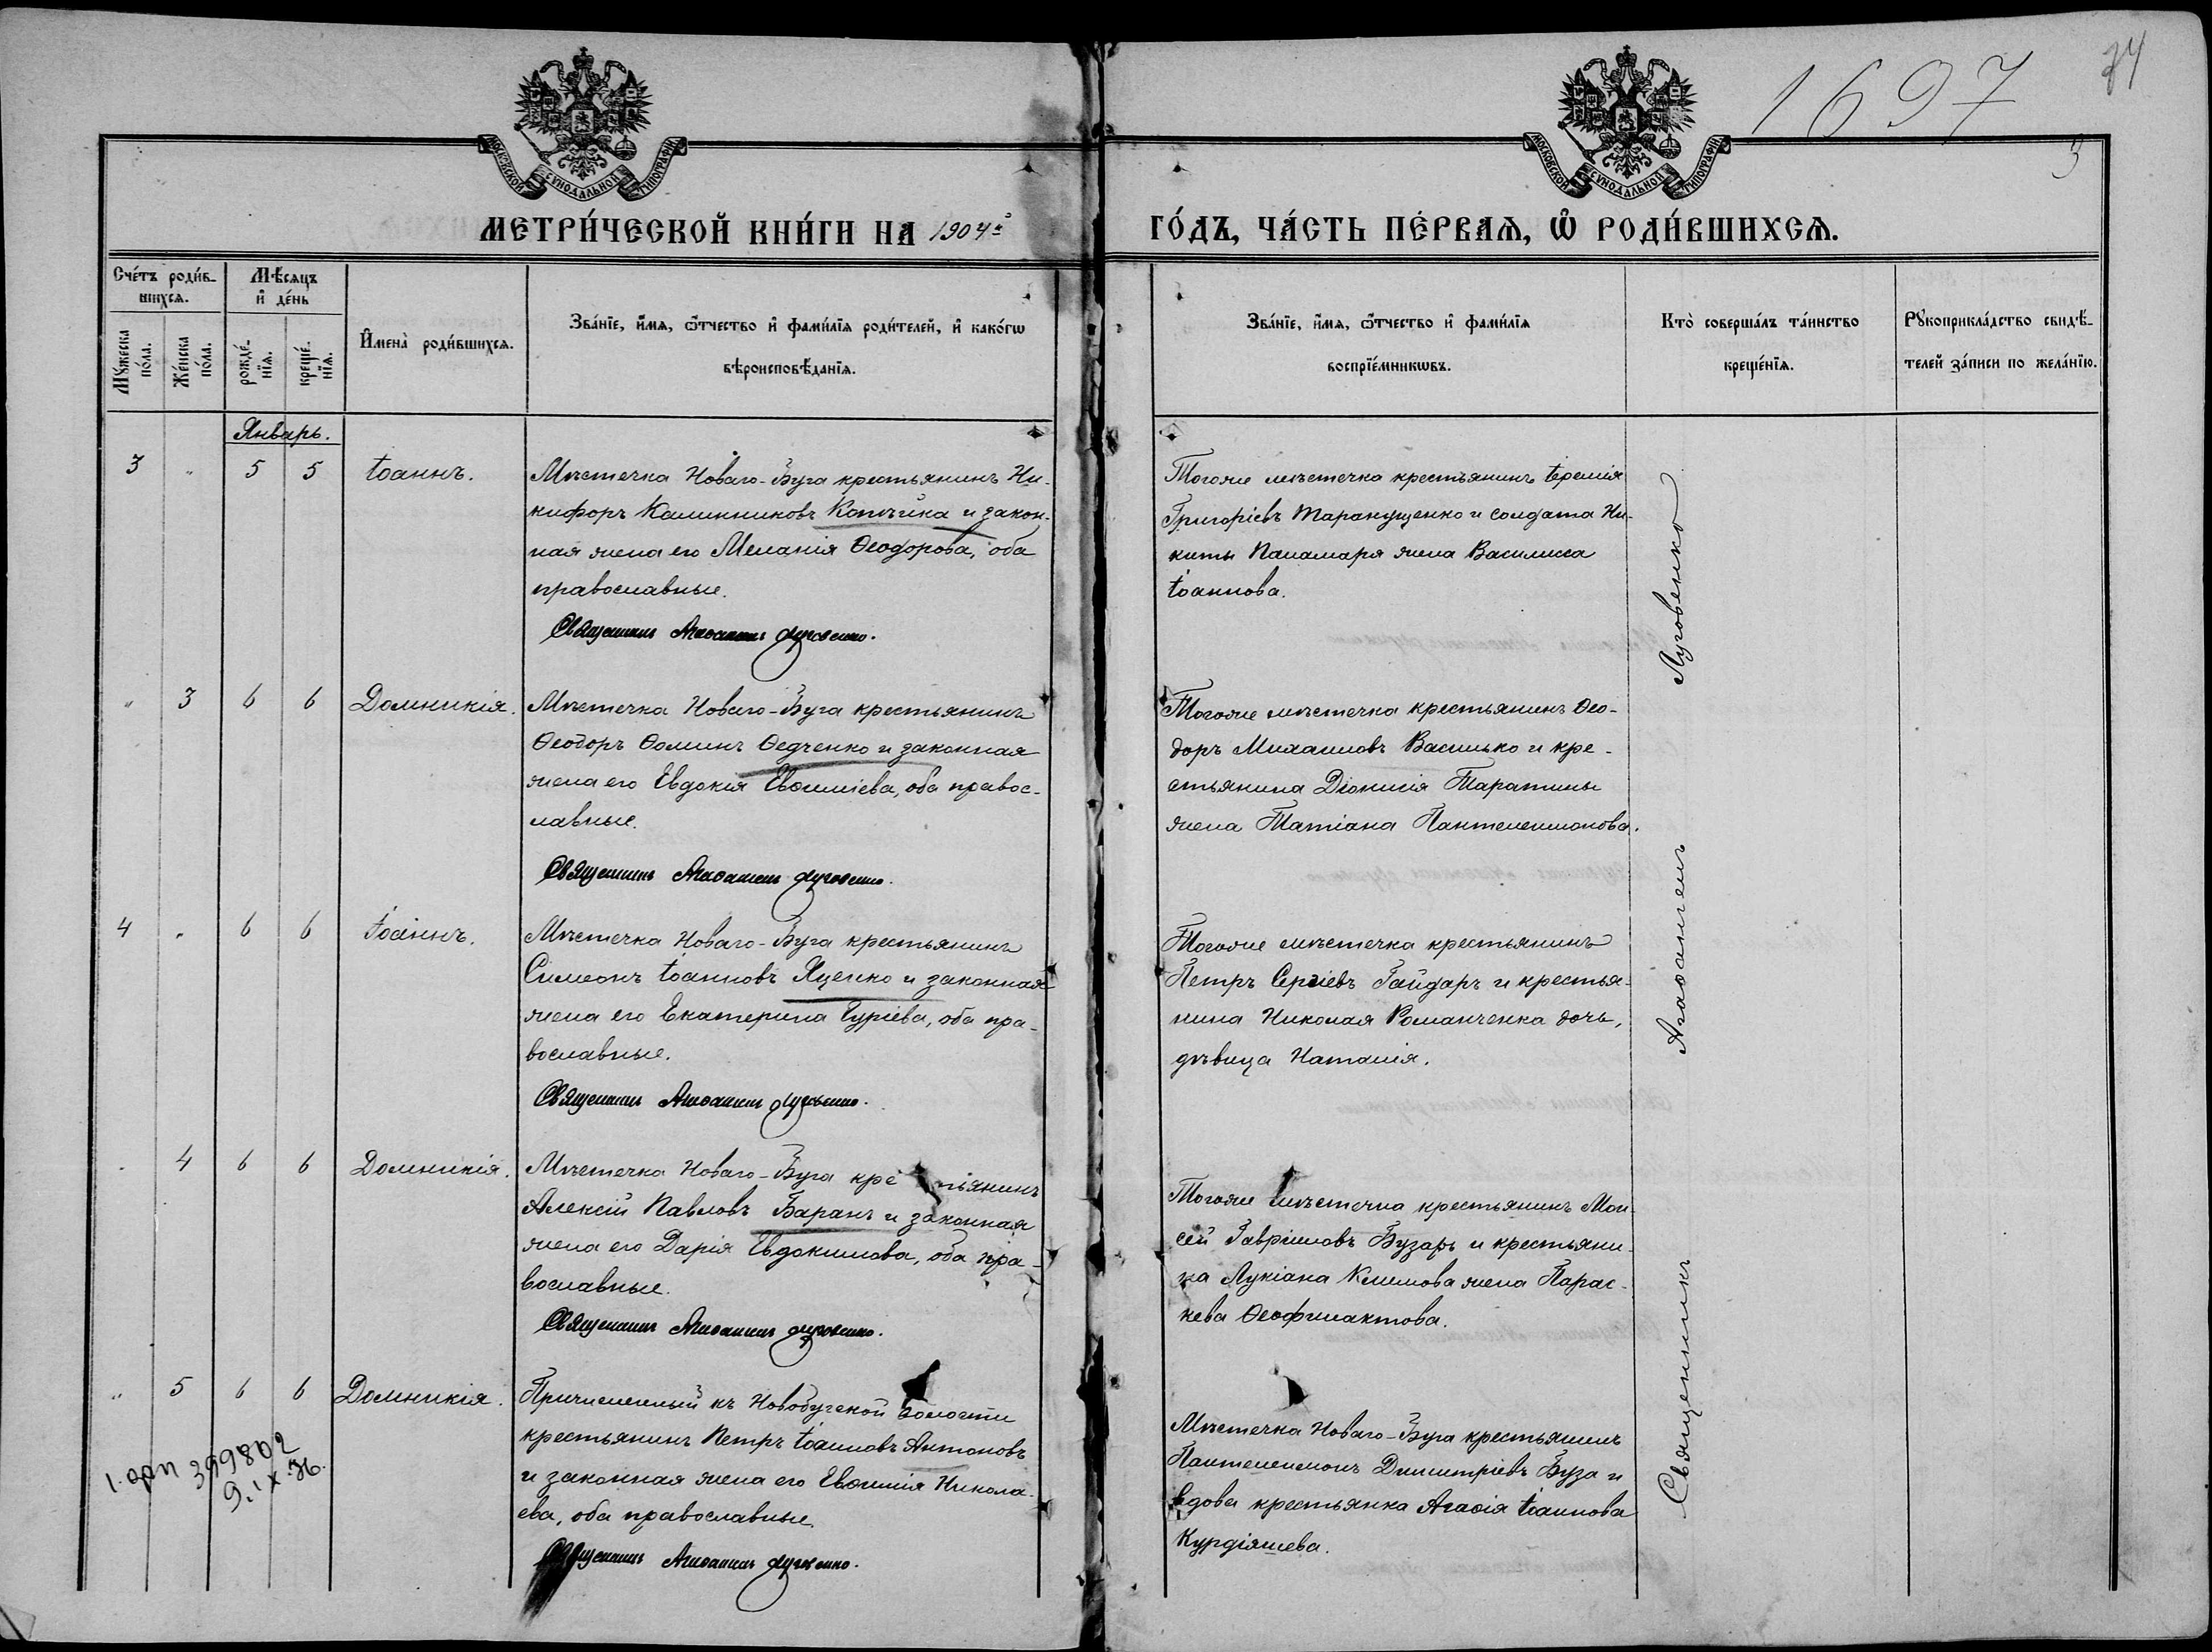 1697
74
3
МОСКОВСКОЙ СУНОДАЛЬНОЙ ТИПОГРАФІИ
МОСКОВСКОЙ СУНОДАЛЬНОЙ ТИПОГРАФІИ
МЕТРИ́ЧЕСКОЙ КНИ́ГИ НА 1904й
ГО́ДЪ, ЧА́СТЬ ПЕ́РВАѦ, Ѡ҆ РОДИ́ВШИХСѦ.
Сче́тъ роди́в-
шихсѧ.
Мꙋ́жеска по́ла.
Же́нска по́ла.
Мѣ́сѧцъ
и҆ де́нь
рожде́-
нїѧ.
креще́-
нїѧ.
И҆мена̀ роди́вшихсѧ.
Зва́нїе, и҆́мѧ, ѻ҆́тчество и҆ фамі́лїѧ роди́телей, и҆ како́гѡ
вѣроисповѣ́данїѧ.
Зва́нїе, и҆́мѧ, ѻ҆́тчество и҆ фамі́лїѧ
воспрїе́мникѡвъ.
Кто̀ соверша́лъ та́инство
креще́нїѧ.
Рꙋкоприкла́дство свидѣ́-
телей за́писи по жела́нїю.
Январь.
3 " 5 5 Іоаннъ.
Мѣстечка Новаго-Буга крестьянинъ Ни-
кифоръ Калинниковъ Копѣйка и закон-
ная жена его Меланія Ѳеодорова, оба
православные.
Священникъ Агаѳангелъ Луговенко.
Тогоже мѣстечка крестьянинъ Іеремія
Григоріевъ Таранущенко и солдата Ни-
киты Паламаря жена Василисса
Іоаннова.
" 3 6 6 Домникія.
Мѣстечка Новаго-Буга крестьянинъ
Ѳеодоръ Ѳоминъ Ѳедченко и законная
жена его Евдокія Евѳиміева, оба правос-
лавные.
Священникъ Агаѳангелъ Луговенко.
Тогоже мѣстечка крестьянинъ Ѳео-
доръ Михаиловъ Василько и кре-
стьянина Діонисія Таратины
жена Татіана Пантелеимонова.
4 " 6 6 Іоаннъ.
Мѣстечка Новаго-Буга крестьянинъ
Симеонъ Іоанновъ Яценко и законная
жена его Екатерина Гуріева, оба пра-
вославные.
Священникъ Агаѳангелъ Луговенко.
Тогоже мѣстечка крестьянинъ
Петръ Сергіевъ Гайдаръ и крестья-
нина Николая Романченка дочь,
дѣвица Наталія.
" 4 6 6 Домникія.
Мѣстечка Новаго-Буга крестьянинъ
Алексій Павловъ Баранъ и законная
жена его Дарія Евдокимова, оба пра-
вославные.
Священникъ Агаѳангелъ Луговенко.
Тогоже мѣстечка крестьянинъ Мои-
сей Гавріиловъ Бузарь и крестьяни-
на Лукіана Климова жена Парас-
кева Ѳеофилактова.
" 5 6 6 Домникія.
Причисленный къ Новобугской волости
крестьянинъ Петръ Іоанновъ Антоновъ
и законная жена его Евѳимія Никола-
ева, оба православные.
Священникъ Агаѳангелъ Луговенко.
Мѣстечка Новаго-Буга крестьянинъ
Пантелеимонъ Димитріевъ Буза и
вдова крестьянка Агаѳія Іоаннова
Курдіяшева.
399802
9.IX.36.
Священникъ Агаѳангелъ Луговенко